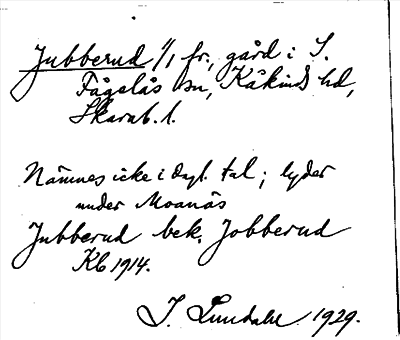 Jubberud 1/1 fr., gård i S.
Fågelås sn, Kåkinds hd,
Skarab. l.
Nämnes icke i dagl. tal; lyder
under Moanäs
Jubberud bek. Jobberud
Kb 1914.
I. Lundahl 1929.